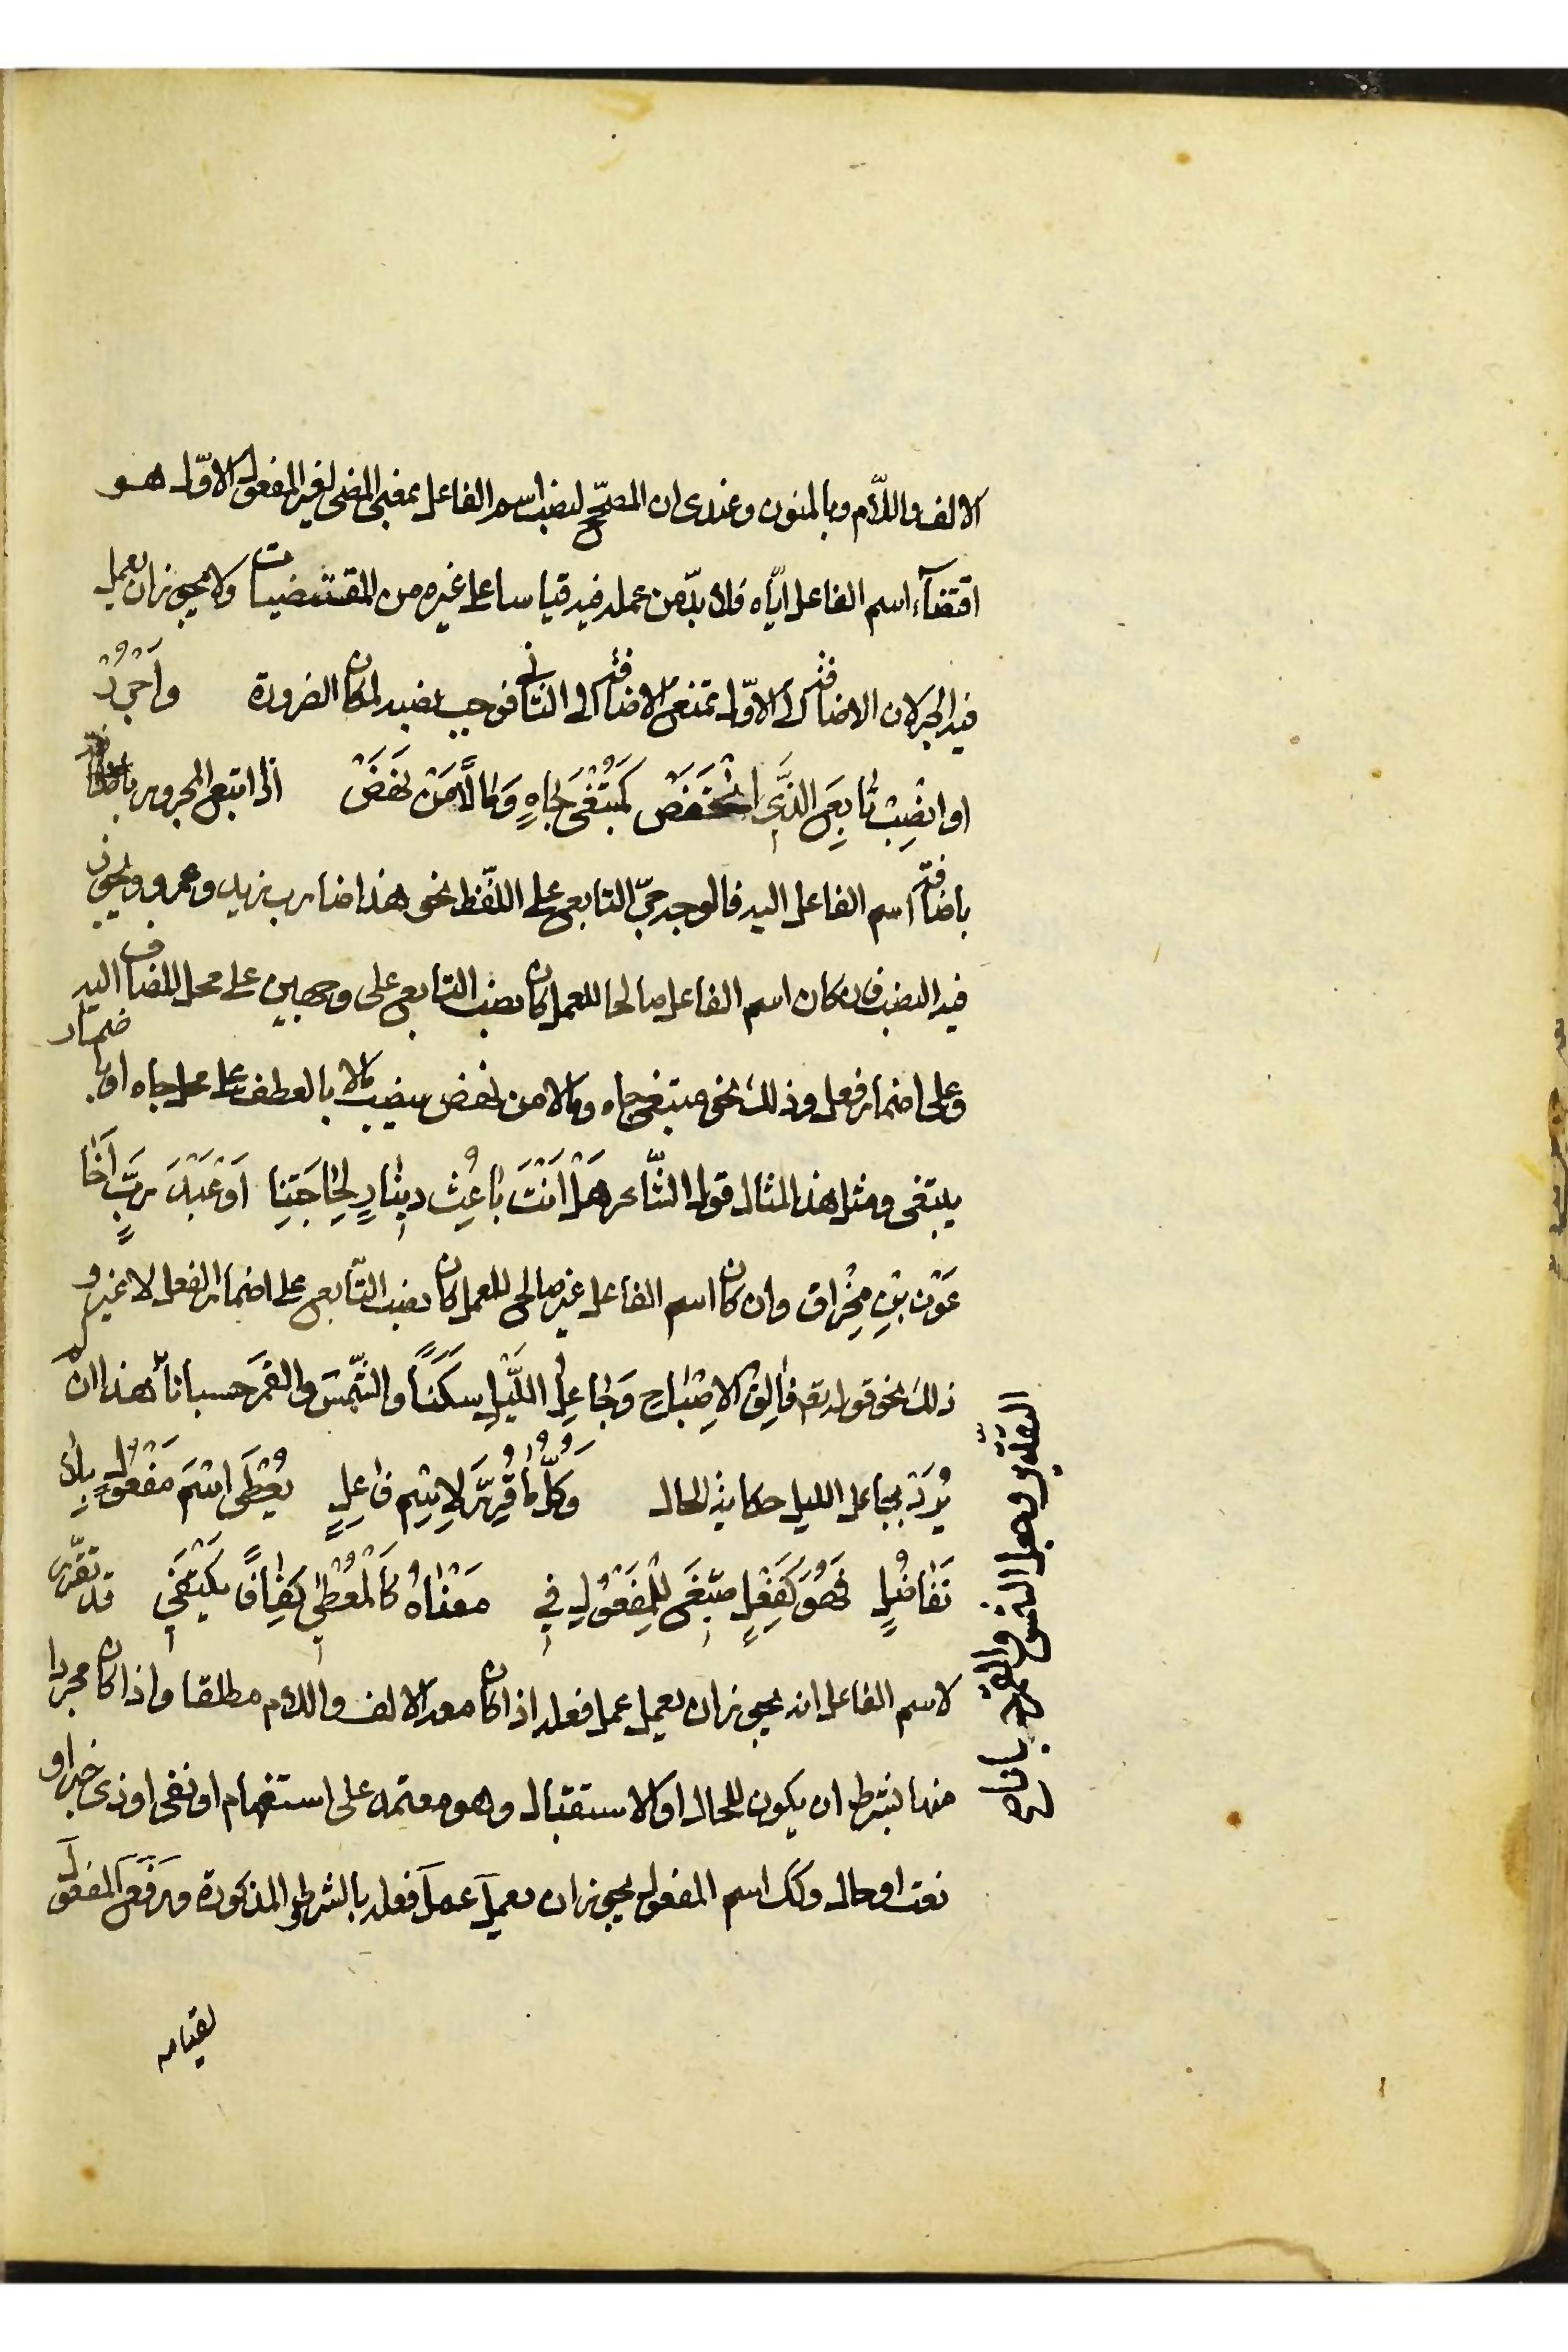 الالف واللّام وبالمنون وعندى ان المصحّح لنصب اسم الفاعل بمعنى المضى لغير المفعول الاوّل هو
اقتضآء اسم الفاعل ايّاه فلا بدّ من عمله فيه قياسا على غيره من المقتضيات ولا يجوز ان يعمل
فيه الجر لان الاضافة الى الاوّل تمنع الاضافة الى الثانى فوجب نصبه لمكان الضرورة وَاَجْرُرْ
اوانْصِبْ تٰابِعَ الَّذِى انْخَفَضَ كَمُبْتَغى جٰاهٍ وَمٰالاً مَنْ نَهَضَ اذا اتبع المجرور
باضافة اسم الفاعل اليه فالوجه جرّ التابع على اللّفظ نحو هذا ضارب زيد وعمرو ويجوز
فيه النصب فان كان اسم الفاعل صالحا للعمل كان نصب التابع على وجهين على محل المضاف اليه
وعلى اضمار فعل وذلك نحو مبتغى جاه ومالا من نهض بنصب مالا بالعطف على محل جاه او باضمار
يبتغى ومثل هذا المثال قول الشّاعر هَلْ اَنْتَ بٰاعِثُ دِينٰارٍ لِحٰاجَتِنٰا اَوْ عَبْدَ رَبٍّ اَخٰا
عَوْنِ بْنِ مِخْرٰاقِ وان كان اسم الفاعل غير صالح للعمل كان نصب التّابع على اضمار الفعل لا غير و
ذلك نحو قوله تعم فٰالِقُ الاِصْبٰاحِ وَجٰاعِلُ اللَّيْلِ سَكَنًا والشّمسَ والقمَرَ حسبانا هذا ان لم
يُرَدْ بجاعل الليل حكاية الحال وَكُلُّ مٰا قُرِّرَ لاِسْمِ فٰاعِلٍ يُعْطَى اسْمَ مَفْعُولٍ بِلاٰ
تَفٰاضُلٍ فَهُوَ كَفِعْلٍ صِيغَ لِلْمَفْعُولِ فِي مَعْنٰاهُ كَالْمُعْطٰى كَفٰافًا يَكْتَفِي قد تقرّر
لاسم الفاعل انه يجوز ان يعمل عمل فعله اذا كان معه الالف واللام مطلقا واذا كان مجردا
منها بشرط ان يكون للحال او الاستقبال وهو معتمد على استفهام او نفى او ذى خبر او
نعت او حال وكك اسم المفعول يجوز ان يعمل عمل فعله بالشروط المذكورة ويرفع المفعول
لقيامه
التقدير وجعل الشمس والقمر